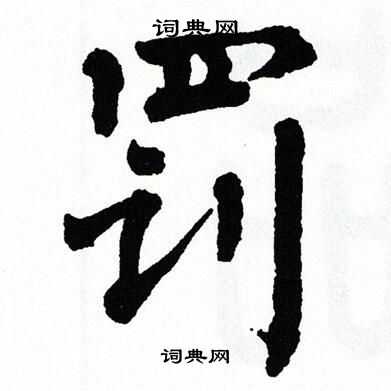 词典网
罚
词典网